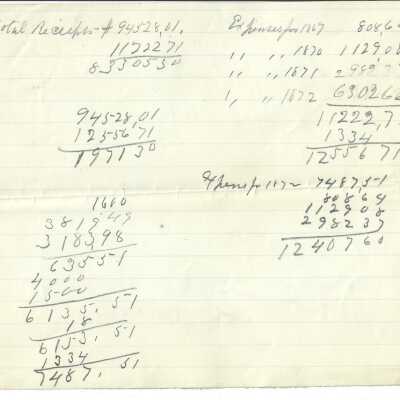 Total Receipts # 94528,01.
1172271
8330530
94528,01
12556,71
197130
1600
381949
318398
63551
4000
1500
6135,51
18
6153,51
1334
7487,51
Expenses for 1869 808,6
" " 1870 11290
" " 1871
" " 1872 63026
11222,7
1334
12556 71
Expenses for 1872 7487,51
80864
112908
298237
1240760